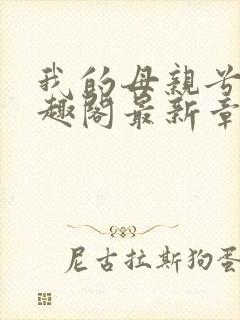 我的母親
趣閣最新章
尼古拉斯狗蛋